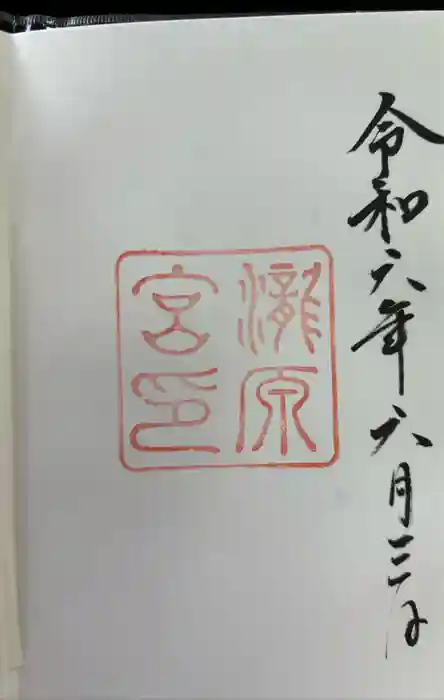 令和六年六月三日
瀧原
宮印